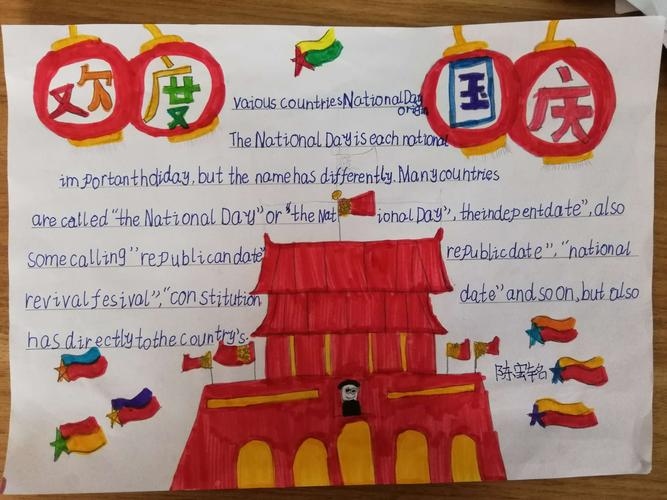 欢度 国庆
vaious countries National Day
origin
The National Day is each national
important hdiday, but the name has differently. Many countries
are called "the National Day" or "the National Day", the indepentdate", also
some calling "republican date" republic date", "national
revival fesival", "constitution date" and so on, but also
has directly to the country's.